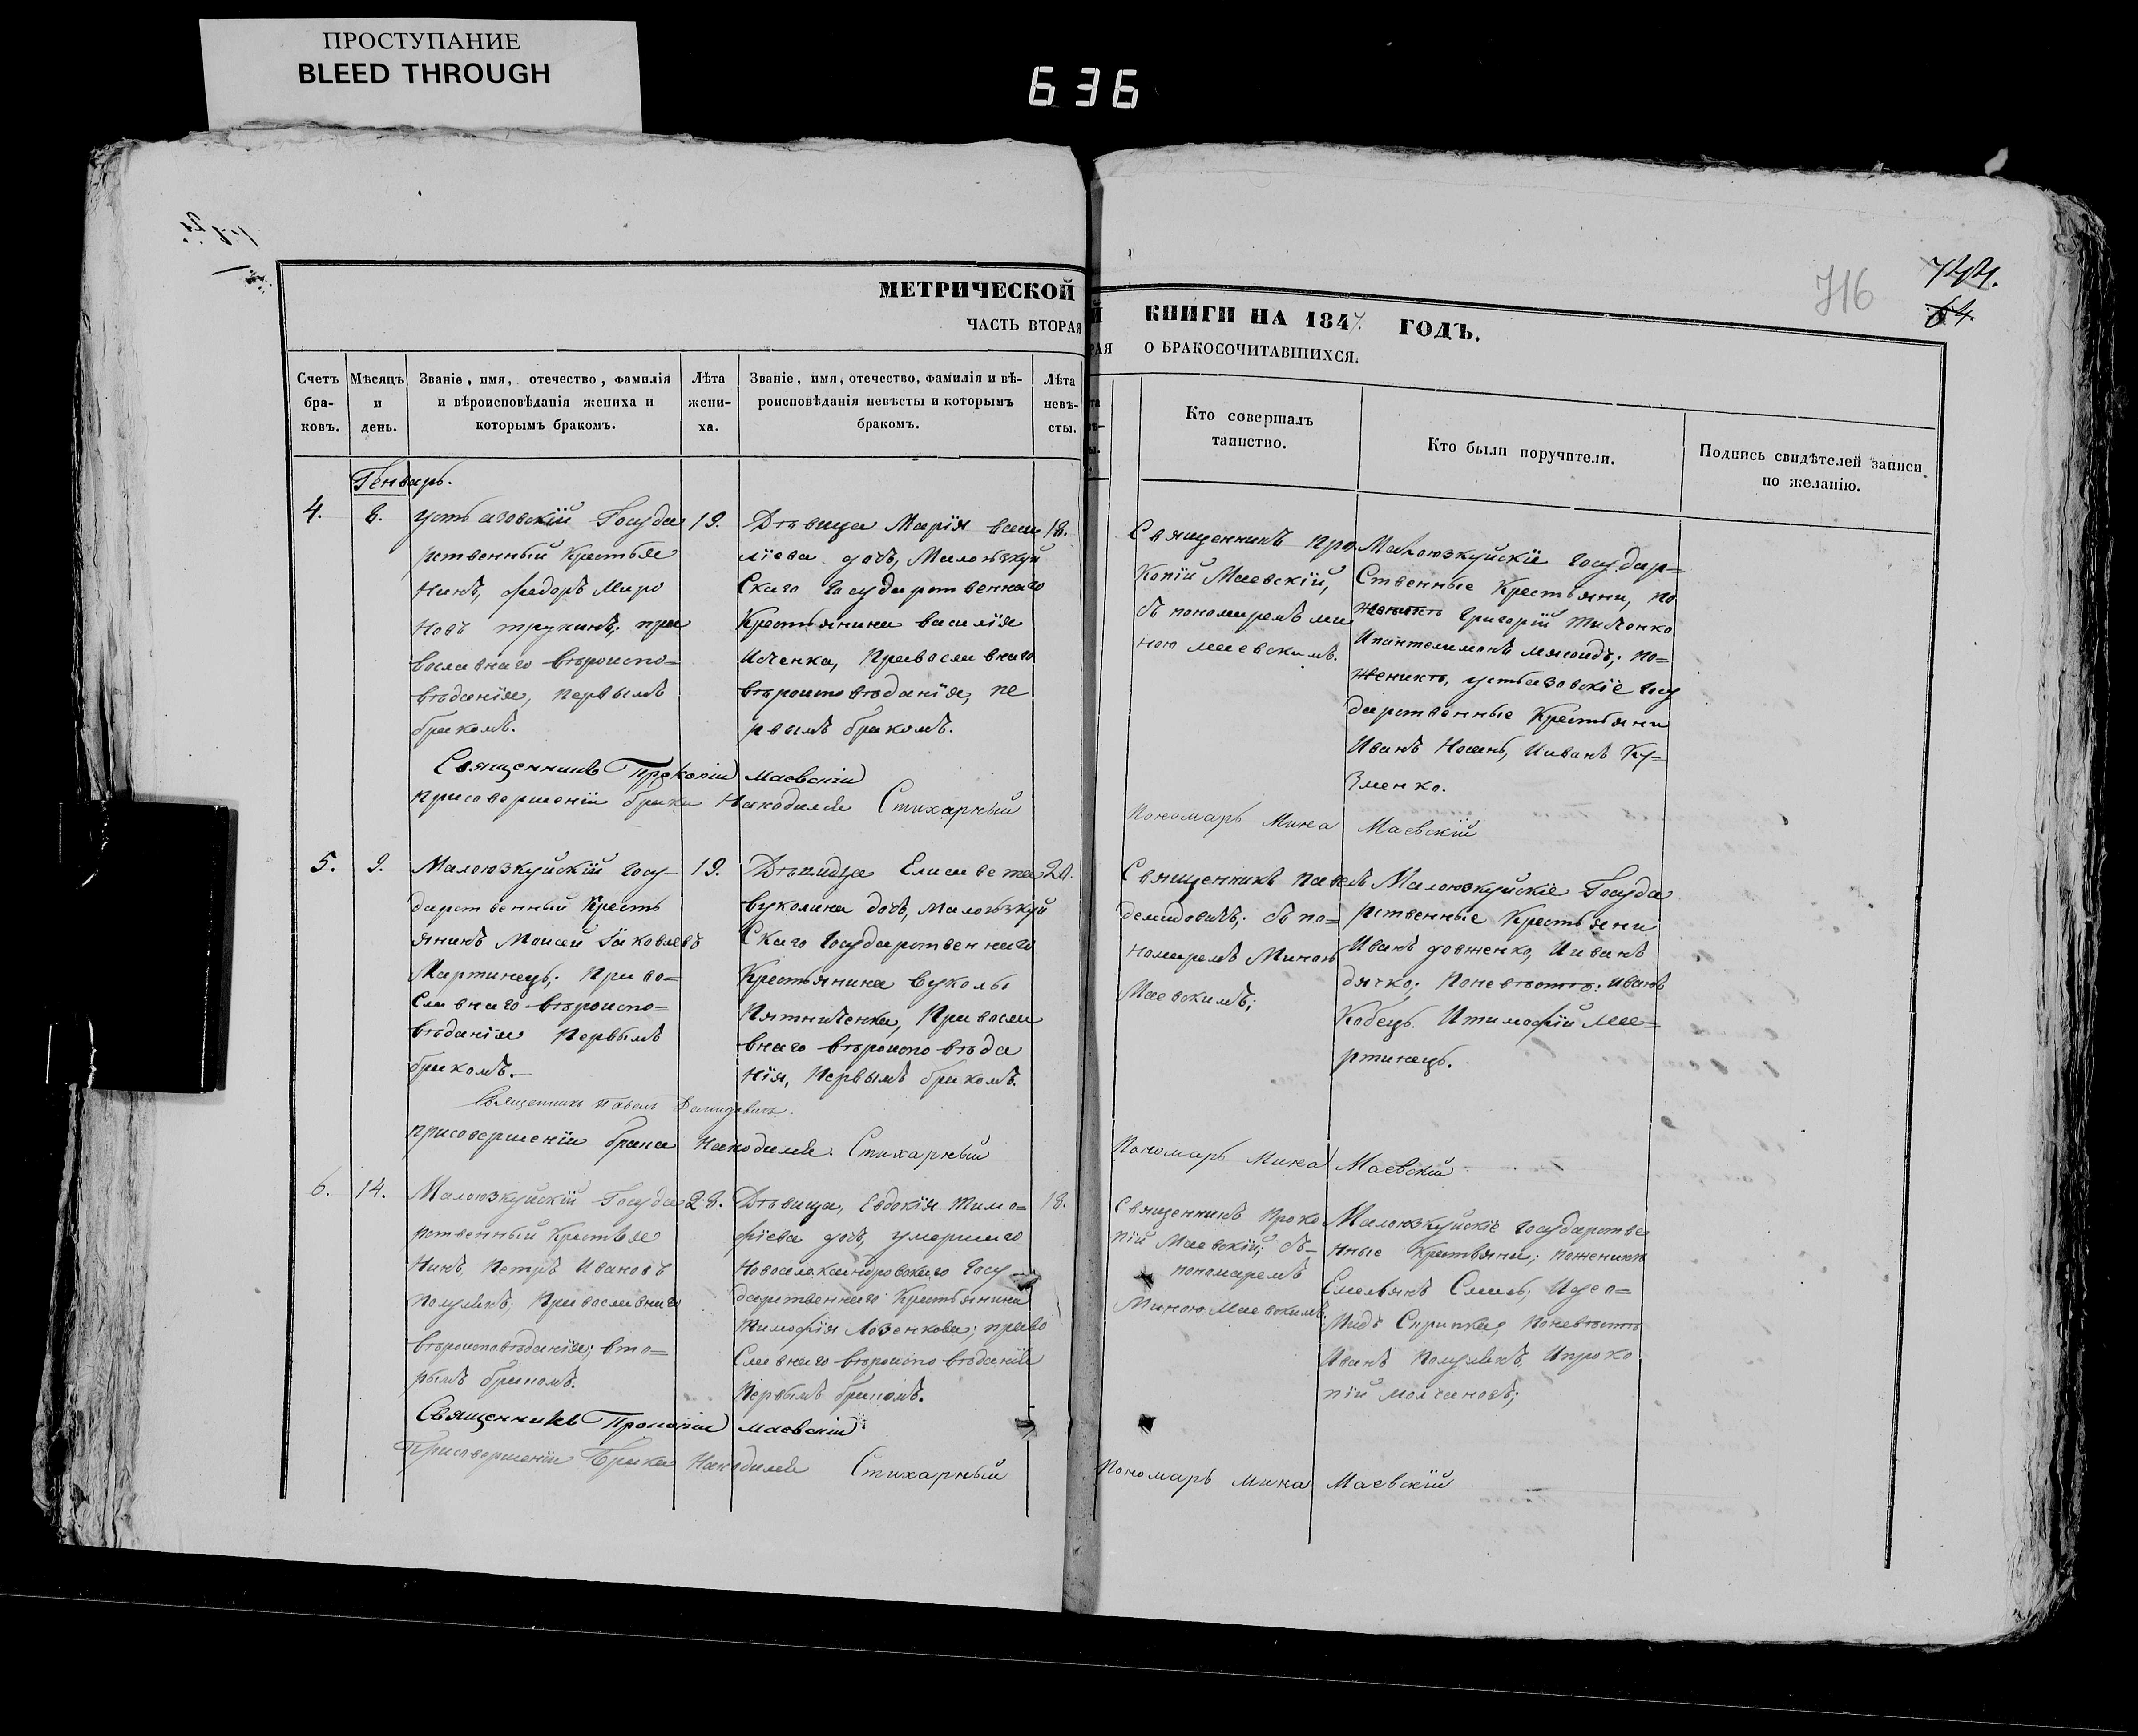 ПРОСТУПАНИЕ
BLEED THROUGH
636
716
744.
64.
МЕТРИЧЕСКОЙ КНИГИ НА 1847. ГОДЪ.
ЧАСТЬ ВТОРАЯ О БРАКОСОЧИТАВШИХСЯ.
Счетъ бра-
ковъ.
Мѣсяцъ
и
день.
Званіе, имя, отечество, фамилія
и вѣроисповѣданія жениха и
которымъ бракомъ.
Лѣта
жени-
ха.
Званіе, имя, отечество, фамилія и вѣ-
роисповѣданія невѣсты и которымъ
бракомъ.
Лѣта
невѣ-
сты.
Кто совершалъ
таинство.
Кто были поручители.
Подпись свидѣтелей записи
по желанію.
Генварь.
4.
8.
Устьазовскій Госуда
рственный Крестья
нинъ, Федоръ Миро
новъ трунинъ; пра
вославнаго вѣроиспо=
вѣданія, первымъ
бракомъ.
19.
Дѣвица Марія васи
ліева дочь, Малоюзкуй
Скаго Государственнаго
Крестьянина василія
Православнаго
вѣроисповѣданія, пе
рвымъ бракомъ.
18.
Священникъ Про
копій Маевскій,
съ пономаремъ ми
ною маевскимъ.
Малоюзкуйскіе Государ=
Ственные Крестьяни, по
женихѣ Григорій
Ипантелимонъ мясоидъ; по=
женихѣ, устьазовскіе Госу
дарственные Крестьяни
Иванъ Иванъ Ку=
зменко.
Священникъ Прокопій Маевскій
Присовершеніи брака Находился Стихарный Пономарь Мина Маевскій
5.
9.
Малоюзкуйскій Госу-
дарственный Кресть
янинъ Моисей Іаковлевъ
Мартинецъ; Право=
славнаго вѣроиспо=
вѣданія Первымъ
бракомъ.—
19.
Дѣвица Елисавета
вуколина дочь, Малоюзкуй
Скаго Государственнаго
Крестьянина Вуколы
Правосла
внаго вѣроисповѣда
нія, Первымъ бракомъ.
20.
Священникъ павелъ
демидовичъ; съ по=
номаремъ Миною
Маевскимъ;
Малоюзкуйскіе Госуда
рственные Крестьяни
Иванъ довженко, Ииванъ
дячко; Поневѣстѣ: иванъ
Кобецъ. Итимофій Ма=
ртинецъ.
Священникъ Павелъ Демидовичъ
присовершеніи брака Находился Стихарный Пономарь Мина Маевскій
6.
14.
Малоюзкуйскій Госуда
рственный Крестья
нинъ Петръ Ивановъ
Полуляхъ; Православнаго
вѣроисповѣданія; вто=
рымъ бракомъ.
28.
Дѣвица, Евдокія Тимо=
фіева дочь, умершаго
Новоалександровскаго Госу-
дарственнаго Крестьянина
Тимофія Лозенкова; право
Славнаго вѣроисповѣданія
Первымъ бракомъ.
18.
Священникъ Проко
пій Маевскій; съ-
пономаремъ
Миною Маевскимъ.
Малоюзкуйскіе Государстве
нные Крестьяни; поженихѣ
Емельянъ
Поневѣстѣ
Иванъ Полуляхъ, Ипроко
пій молчановъ;
Священникъ Прокопій Маевскій
Присовершеніи Брака Находился Стихарный Пономарь Мина Маевскій